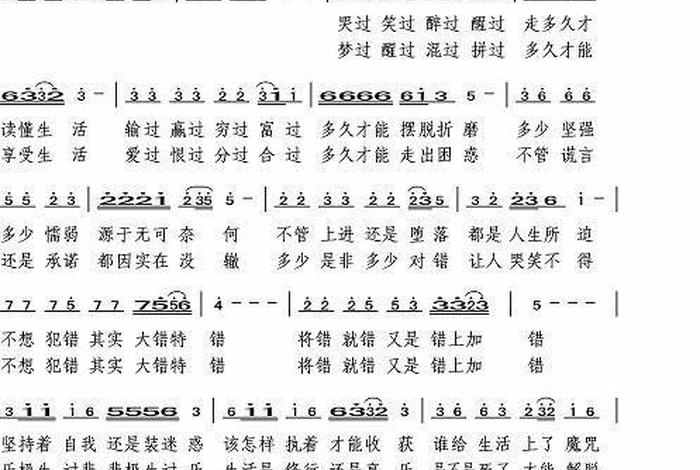 哭过 笑过 醉过 醒过 走多久才
梦过 醒过 混过 拼过 多久才能
6332 3 - | 33 33 22 311 | 6666 613 5 - | 36 66
读懂生 活 输过 赢过 穷过 富 过 多久才能 摆脱折 磨 多少 坚强
享受生 活 爱过 恨过 分过 合 过 多久才能 走出困 惑 不管 谎言
55 23 | 2221 235 5 - | 22 33 22 235 | 32 236 1 - |
多少 懦弱 源于无可 奈 何 不管 上进 还是 堕 落 都是 人生所 迫
还是 承诺 都因实在 没 辙 多少 是非 多少 对 错 让人 哭笑不 得
77 75 77 7556 | 4 - - - | 22 25 53 3323 | 5 - - - |
不想 犯错 其实 大错特 错 将错 就错 又是 错上加 错
不想 犯错 其实 大错特 错 将错 就错 又是 错上加 错
311 16 5556 3 | 611 16 6332 3 | 36 63 232 16
坚持着 自我 还是装迷 惑 该怎样 执着 才能收 获 谁给 生活 上了 魔咒